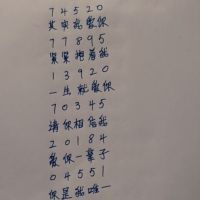 74520
其实我爱你
77895
紧紧抱着我
13920
一生就爱你
70345
请你相信我
20184
爱你一辈子
04551
你是我唯一